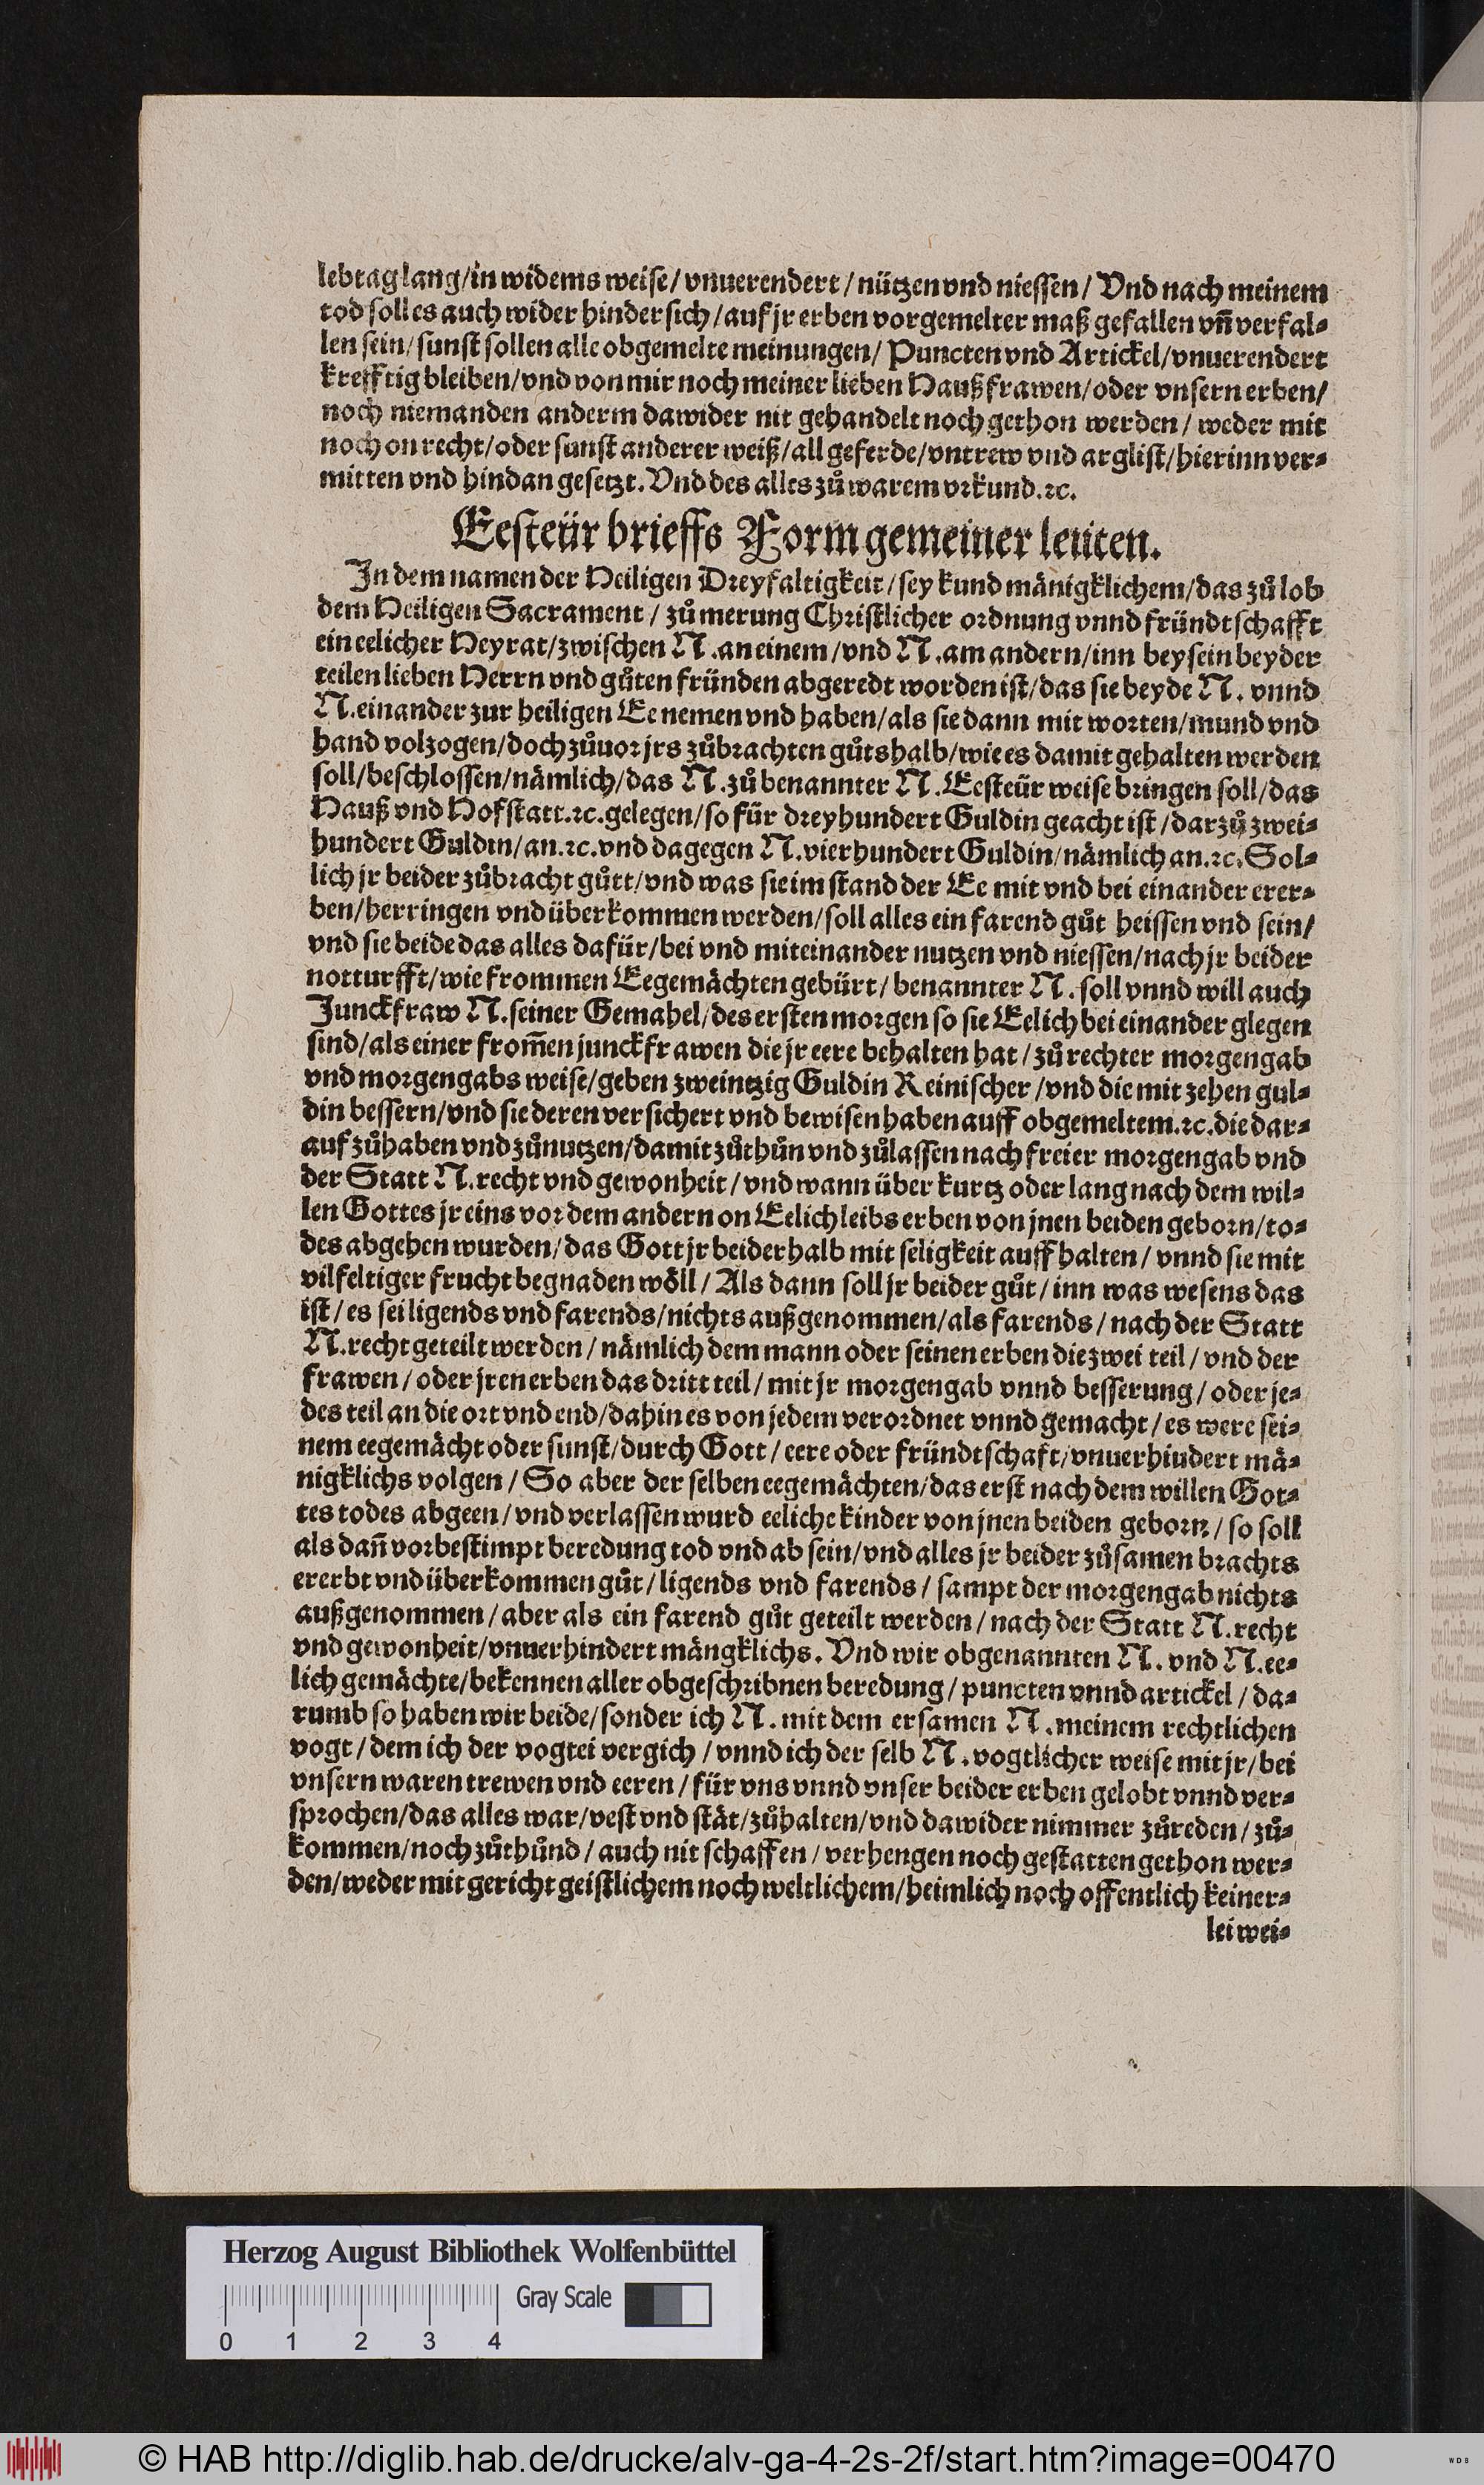 lebtag lang/in widems weise/ vnuerendert/nützen vnd niessen/ Vnd nach meinem
tod soll es auch wider hindersich/auf jr erben vorgemelter maß gefallen vñ verfal-
len sein/sunst sollen alle obgemelte meinungen/ Puncten vnd Artickel/vnuerendert
krefftig bleiben/vnd von mir noch meiner lieben Haußfrawen/oder vnsern erben/
noch niemanden anderm dawider nit gehandelt noch gethon werden/ weder mit
noch on recht/oder sunst anderer weiß/all geferde/vntrew vnd arglist/hierinn ver-
mitten vnd hindan gesetzt. Vnd des alles zů warem vrkund.ꝛc.
Eesteür brieffs Form gemeiner leuten.
In dem namen der Heiligen Dreyfaltigkeit/sey kund mänigklichem/das zů lob
dem Heiligen Sacrament/ zů merung Christlicher ordnung vnnd fründtschafft
ein eelicher Heyrat/zwischen N. an einem/vnd N. am andern/inn beysein beyder
teilen lieben Herrn vnd gůten fründen abgeredt worden ist/das sie beyde N. vnnd
N. einander zur heiligen Ee nemen vnd haben/als sie dann mit worten/mund vnd
hand volzogen/doch zůuor jrs zůbrachten gůts halb/wie es damit gehalten werden
soll/beschlossen/nämlich/das N. zů benannter N. Eesteür weise bringen soll/das
Hauß vnd Hofstatt.ꝛc.gelegen/so für dreyhundert Guldin geacht ist/darzů zwei-
hundert Guldin/an.ꝛc.vnd dagegen N. vierhundert Guldin/nämlich an.ꝛc. Sol-
lich jr beider zůbracht gůtt/vnd was sie im stand der Ee mit vnd bei einander erer-
ben/herringen vnd überkommen werden/soll alles ein farend gůt heissen vnd sein/
vnd sie beide das alles dafür/bei vnd miteinander nutzen vnd niessen/nach jr beider
notturfft/wie frommen Eegemächten gebürt/ benannter N. soll vnnd will auch
Junckfraw N. seiner Gemahel/des ersten morgen so sie Eelich bei einander glegen
sind/als einer from̃en junckfrawen die jr eere behalten hat/zů rechter morgengab
vnd morgengabs weise/geben zweintzig Guldin Reinischer/vnd die mit zehen gul-
din bessern/vnd sie deren versichert vnd bewisen haben auff obgemeltem.ꝛc.die dar-
auf zůhaben vnd zůnutzen/damit zůthůn vnd zůlassen nach freier morgengab vnd
der Statt N. recht vnd gewonheit/vnd wann über kurtz oder lang nach dem wil-
len Gottes jr eins vor dem andern on Eelich leibs erben von jnen beiden geborn/to-
des abgehen wurden/das Gott jr beiderhalb mit seligkeit auffhalten/ vnnd sie mit
vilfeltiger frucht begnaden wöll/ Als dann soll jr beider gůt/inn was wesens das
ist/es sei ligends vnd farends/nichts außgenommen/als farends/nach der Statt
N. recht geteilt werden/ nämlich dem mann oder seinen erben die zwei teil/ vnd der
frawen/oder jren erben das dritt teil/mit jr morgengab vnnd besserung/oder je-
des teil an die ort vnd end/dahin es von jedem verordnet vnnd gemacht/es were sei-
nem eegemächt oder sunst/durch Gott/eere oder fründtschaft/vnuerhiudert mä-
nigklichs volgen/ So aber der selben eegemächten/das erst nach dem willen Got-
tes todes abgeen/vnd verlassen wurd eeliche kinder von jnen beiden geborn/so soll
als dañ vorbestimpt beredung tod vnd ab sein/vnd alles jr beider zůsamen brachts
ererbt vnd überkommen gůt/ligends vnd farends/ sampt der morgengab nichts
außgenommen/aber als ein farend gůt geteilt werden/nach der Statt N. recht
vnd gewonheit/vnuerhindert mängklichs. Vnd wir obgenannten N. vnd N. ee-
lich gemächte/bekennen aller obgeschribnen beredung/puncten vnnd artickel/da-
rumb so haben wir beide/sonder ich N. mit dem ersamen N. meinem rechtlichen
vogt/dem ich der vogtei vergich/vnnd ich der selb N. vogtlicher weise mit jr/bei
vnsern waren trewen vnd eeren/für vns vnnd vnser beider erben gelobt vnnd ver-
sprochen/das alles war/vest vnd stät/zůhalten/vnd dawider nimmer zůreden/zů-
kommen/noch zůthůnd/auch nit schaffen/verhengen noch gestatten gethon wer-
den/weder mit gericht geistlichem noch weltlichem/heimlich noch offentlich keiner-
lei wei-
Herzog August Bibliothek Wolfenbüttel
Gray Scale
0 1 2 3 4
© HAB http://diglib.hab.de/drucke/alv-ga-4-2s-2f/start.htm?image=00470
WDB